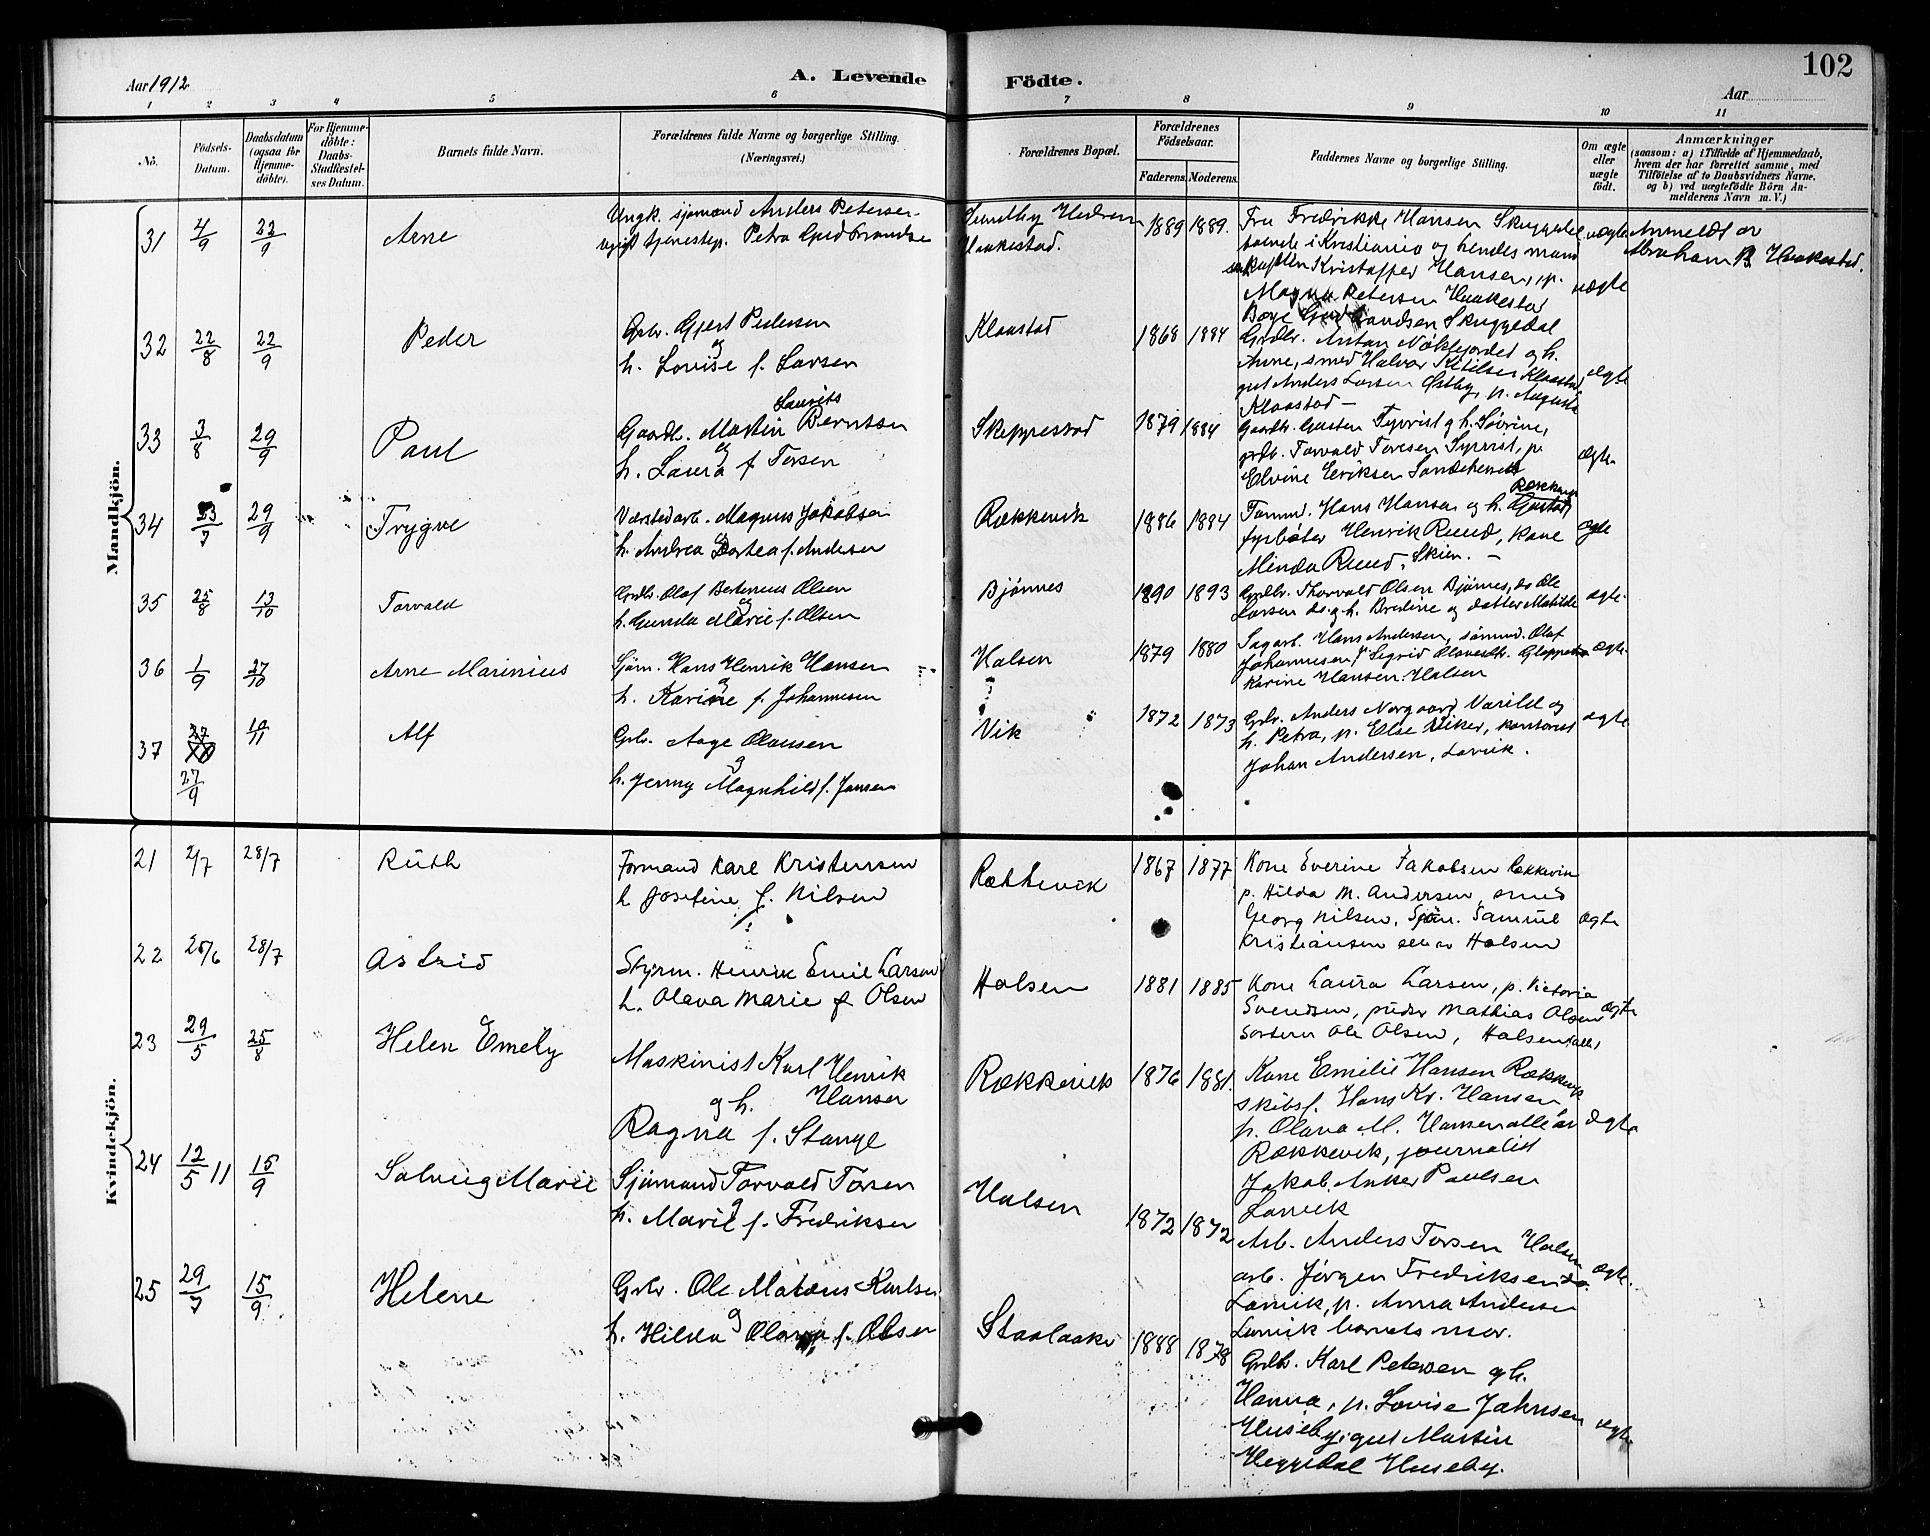 102
Aar 1912
A. Levende Födte.
Aar
1 2 3 4 5 6 7 8 9 10 11
No.
Födsels-Datum.
Daabsdatum (ogsaa for Hjemme-döbte).
For Hjemme-döbte: Daabs-Stadfæstel-ses Datum.
Barnets fulde Navn.
Forældrenes fulde Navne og borgerlige Stilling.
(Næringsvei.)
Forældrenes Bopæl.
Forældrenes Födselsaar.
Faderens. Moderens.
Faddernes Navne og borgerlige Stilling.
Om ægte eller uægte födt.
Anmærkninger
(saasom: a) i Tilfælde af Hjemmedaab,
hvem der har forrettet samme, med
Tilföielse af to Daabsvidners Navne,
og b) ved uægtefödte Börn An-
melderens Navn m. V.)
Mandkjön.
31 4/9 22/9 Arne
Ungk. sjømand Anders Petersen
Petra
Haakestad.
1889 1889.
Fru Fredrikke Hansen
i Kristiania og hendes mand
Kristoffer Hansen, p.
Magna Petersen Haakestad
Skuggedal
uægte
Anmeldt av
Abraham Haakestad.
32 22/8 22/9 Peder
Grbr. Gjert Pedersen
og
h. Lovise f. Larsen
Klaastad
1868 1884
Grdbr. Anton og h.
Anne, smed Halvor Ketilsen Klaastad,
gut Anders Larsen Østby, p. Augusta
Klaastad
ægte
33 3/8 29/9 Paul
Gaardb. Martin Laurits Berntsen
og
h. Laura f. Torsen
Skeppestad
1879 1884
h. Severine,
Torvald Toresen p.
Elvine Eriksen
ægte
34 23/7 29/9 Trygve
Værstedarb. Magnus Jakobsen
h. Andrea Dortea f. Andersen
Rækkevik
1886 1884
Tømmd. Hans Hansen og h.
fyrbøter Henrik Ruud, kone
Minda Ruud, Skien.
ægte
35 25/8 13/10 Torvald
Grdbr. Olaf Bertinius Olsen
og
h. Gunda Marie f. Olsen
Bjønnes
1890 1893
Grdbr. Thorvald Olsen Bjønnes, do Ole
Larsen do. og h. Bredine og datter Matilde
ægte
36 1/9 27/10 Arne Marinius
Sjøm. Hans Henrik Hansen
og
h. Karine f. Johannesen
Halsen
1879 1880
Sagarb. Hans Andersen, sømmd. Olaf
Johannesen, Sigrid
Karine Hansen. Halsen
ægte
37 27/9 Alf
Grbr. Aage Olausen
og
h. Jenny Magnhild f. Jansen
Vik
1872 1873
Grbr. Anders Norgaard Varild og
h. Petra, p. Else Viker, kontorist
Johan Andersen, Larvik.
ægte
Kvindekjön.
21 2/7 28/7 Ruth
Formand Karl Kristensen
h Josefine f. Nilsen
Rækkevik
1867 1877
Kone Everine Jakobsen Rækkevik
p. Hilda M. Andersen, smed
Georg Nilsen, Sjøm. Samuel
Kristiansen alle av Halsen
ægte
22 28/7 Astrid
Styrm. Henrik Emil Larsen
h. Olava Marie f. Olsen
Halsen
1881 1885
Kone Laura Larsen, p. Victoria
Svendsen, Mathias Olsen
Ole Olsen, Halsen alle
ægte
23 29/5 25/8 Helen Emely
Maskinist Karl Henrik
og h. Hansen
Ragna f. Stange
Rækkevik
1876 1881.
Kone Emilie Hansen Rækkevik
skibsf. Hans Kr. Hansen
p. Olava M. Hansen alle av
Rækkevik, journalist
Jakob Anker Paulsen
Larvik
ægte
24 12/5 11 15/9 Solveig Marie
Sjømand Torvald Torsen
og
h. Marie f. Fredriksen
Halsen
1872 1872
Arb. Anders Torsen Halsen
arb. Jørgen Fredriksen do.
Larvik, p. Anna Andersen
Larvik barnets mor.
ægte.
25 29/7 15/9 Helene
Grbr. Ole Matæus Karlsen
og
h. Hilda f. Olsen
Staalaaker
1888 1878
Grdb. Karl Petersen og h.
Hanna, p. Lovise Jahnsen
Huseby, gut Martin
Heggedal Huseby.
ægte